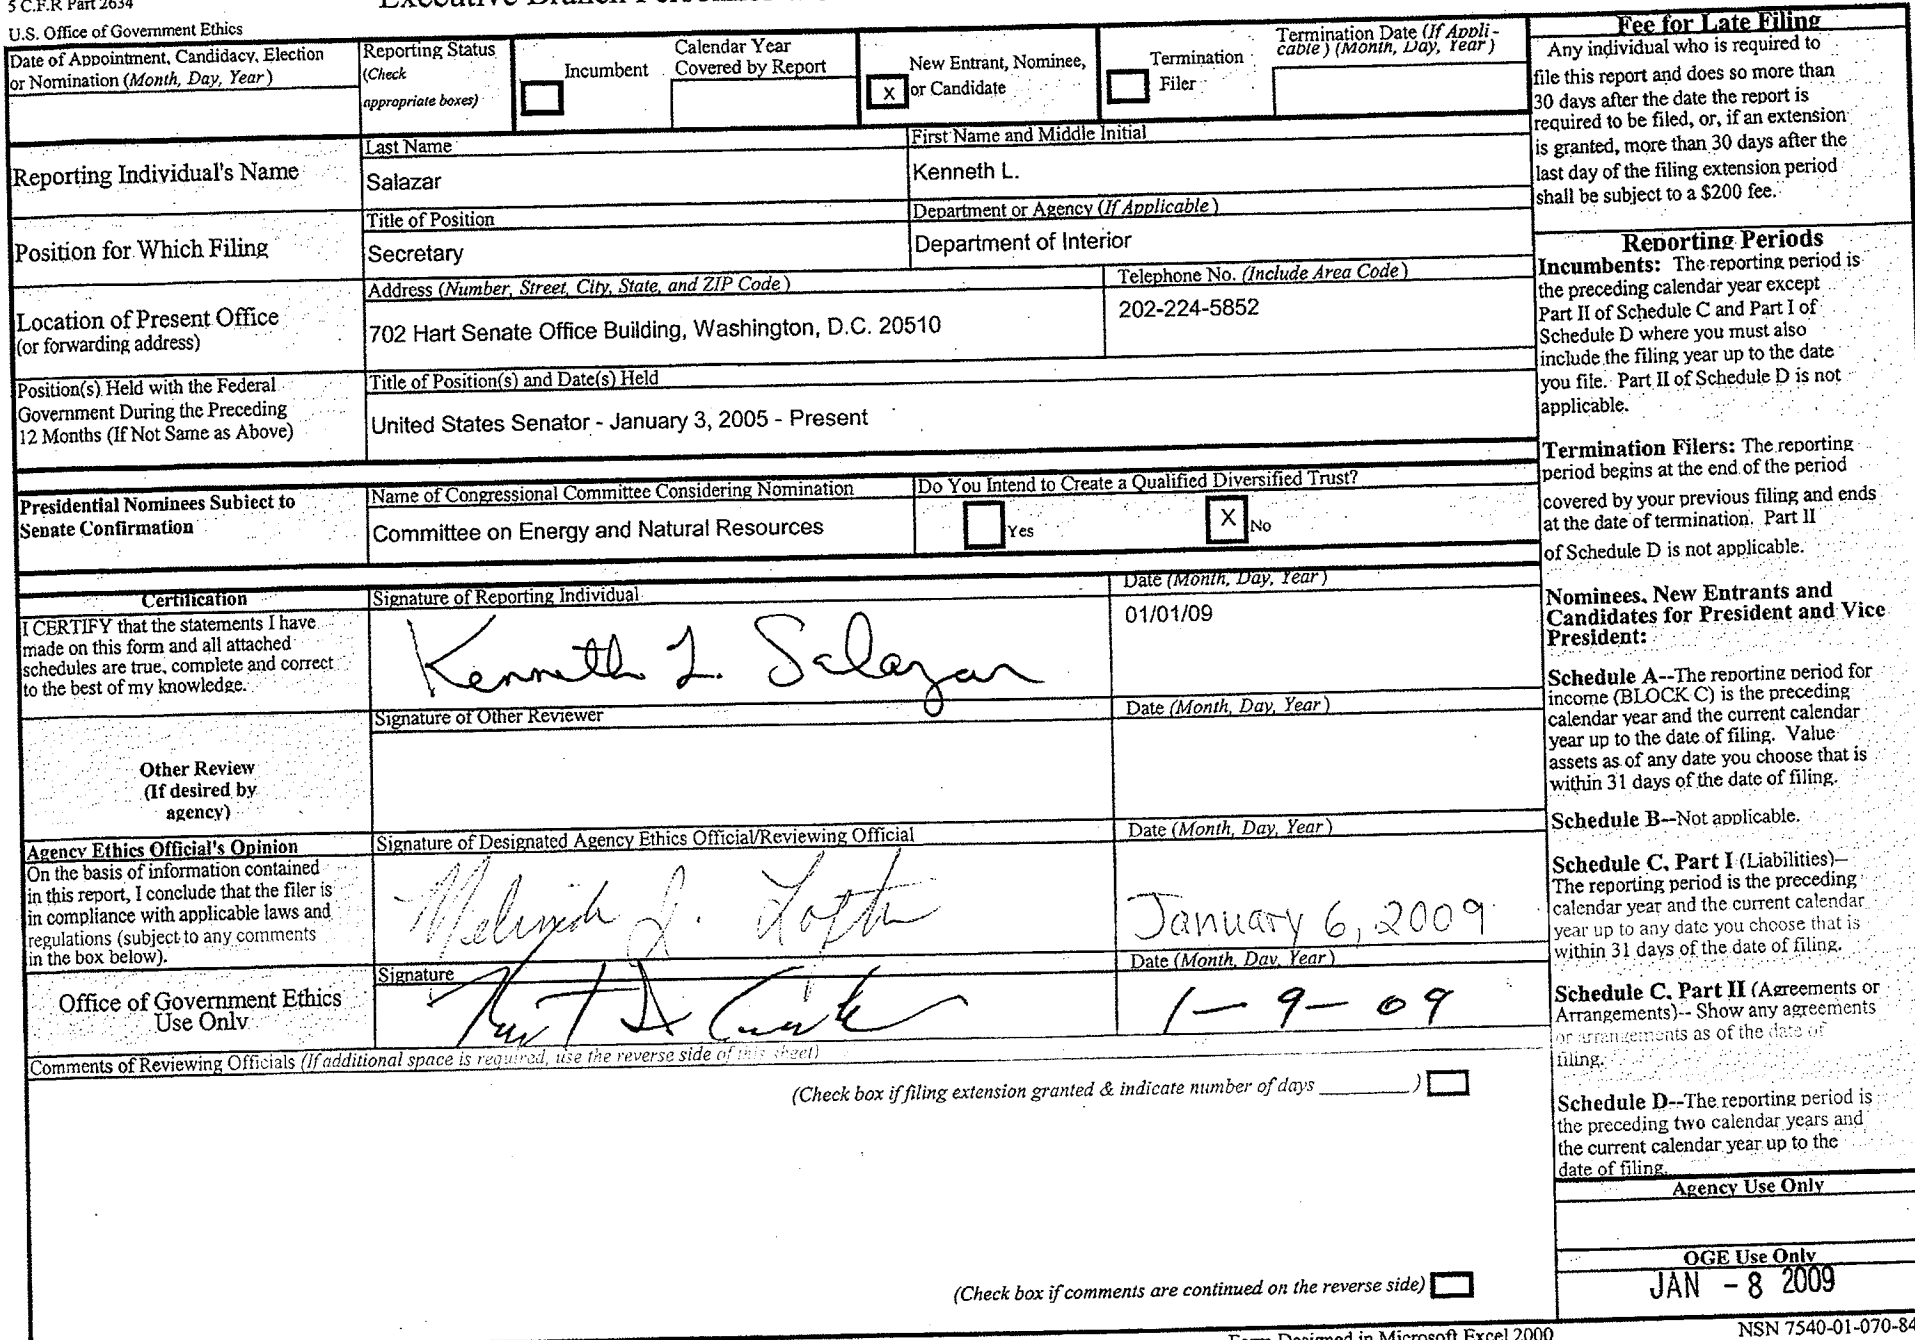 5 C.F.R Part 2634
U.S. Office of Government Ethics
Date of Appointment, Candidacy, Election
or Nomination (Month, Day, Year)
Reporting Status
(Check
appropriate boxes)
Incumbent
Calendar Year
Covered by Report
x
New Entrant, Nominee,
or Candidate
Termination
Filer
Termination Date (If Appli-
cable) (Month, Day, Year)
Reporting Individual's Name
Last Name
Salazar
First Name and Middle Initial
Kenneth L.
Position for Which Filing
Title of Position
Secretary
Department or Agency (If Applicable)
Department of Interior
Location of Present Office
(or forwarding address)
Address (Number, Street, City, State, and ZIP Code)
702 Hart Senate Office Building, Washington, D.C. 20510
Telephone No. (Include Area Code)
202-224-5852
Position(s) Held with the Federal
Government During the Preceding
12 Months (If Not Same as Above)
Title of Position(s) and Date(s) Held
United States Senator - January 3, 2005 - Present
Presidential Nominees Subject to
Senate Confirmation
Name of Congressional Committee Considering Nomination
Committee on Energy and Natural Resources
Do You Intend to Create a Qualified Diversified Trust?
Yes
X
No
Certification
I CERTIFY that the statements I have
made on this form and all attached
schedules are true, complete and correct
to the best of my knowledge.
Signature of Reporting Individual
Kenneth L. Salazar
Date (Month, Day, Year)
01/01/09
Other Review
(If desired by
agency)
Signature of Other Reviewer
Date (Month, Day, Year)
Agency Ethics Official's Opinion
On the basis of information contained
in this report, I conclude that the filer is
in compliance with applicable laws and
regulations (subject to any comments
in the box below).
Signature of Designated Agency Ethics Official/Reviewing Official
Date (Month, Day, Year)
January 6, 2009
Office of Government Ethics
Use Only
Signature
Date (Month, Day, Year)
1-9-09
Comments of Reviewing Officials (If additional space is required, use the reverse side of this sheet)
(Check box if filing extension granted & indicate number of days ________)
(Check box if comments are continued on the reverse side)
Fee for Late Filing
Any individual who is required to
file this report and does so more than
30 days after the date the report is
required to be filed, or, if an extension
is granted, more than 30 days after the
last day of the filing extension period
shall be subject to a $200 fee.
Reporting Periods
Incumbents: The reporting period is
the preceding calendar year except
Part II of Schedule C and Part I of
Schedule D where you must also
include the filing year up to the date
you file. Part II of Schedule D is not
applicable.
Termination Filers: The reporting
period begins at the end of the period
covered by your previous filing and ends
at the date of termination. Part II
of Schedule D is not applicable.
Nominees, New Entrants and
Candidates for President and Vice
President:
Schedule A--The reporting period for
income (BLOCK C) is the preceding
calendar year and the current calendar
year up to the date of filing. Value
assets as of any date you choose that is
within 31 days of the date of filing.
Schedule B--Not applicable.
Schedule C, Part I (Liabilities)--
The reporting period is the preceding
calendar year and the current calendar
year up to any date you choose that is
within 31 days of the date of filing.
Schedule C, Part II (Agreements or
Arrangements)-- Show any agreements
or arrangements as of the date of
filing.
Schedule D--The reporting period is
the preceding two calendar years and
the current calendar year up to the
date of filing.
Agency Use Only
OGE Use Only
JAN - 8 2009
Form Designed in Microsoft Excel 2000
NSN 7540-01-070-84